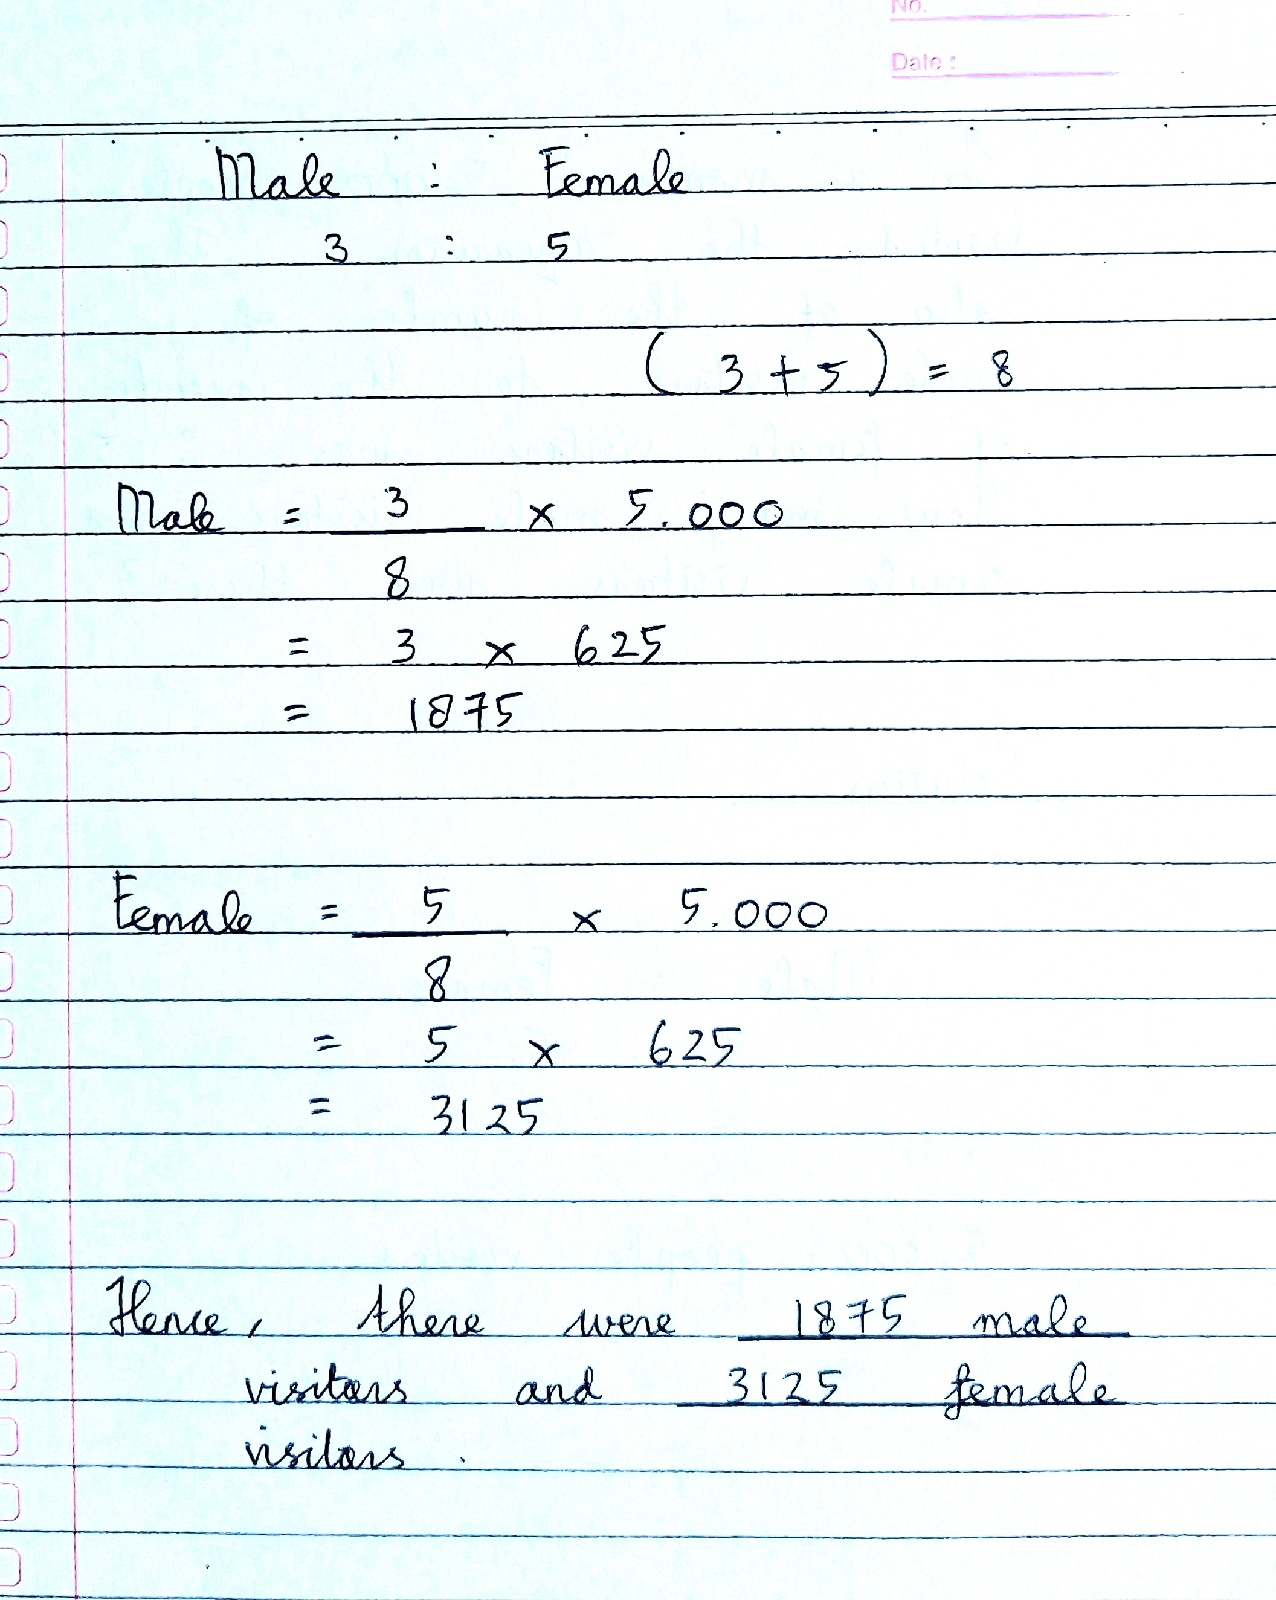 No.
Date :
Male : Female
3 : 5
( 3 + 5 ) = 8
Male = 3 × 5.000
8
= 3 × 625
= 1875
Female = 5 × 5.000
8
= 5 × 625
= 3125
Hence, there were 1875 male
visitors and 3125 female
visitors .